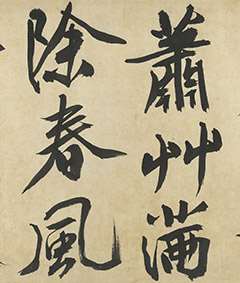 蕭艸滿
除春風